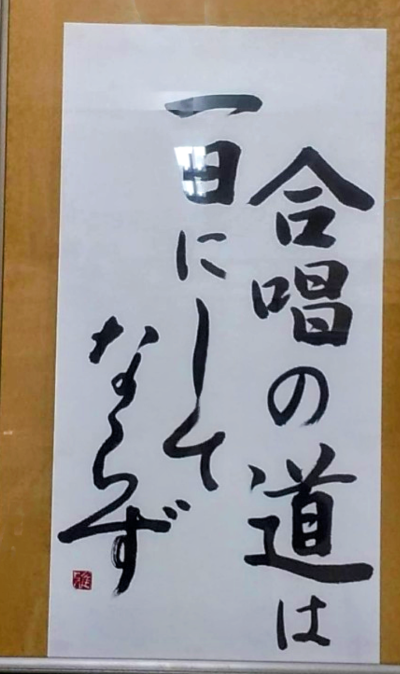 合唱の道は
一日にして
ならず